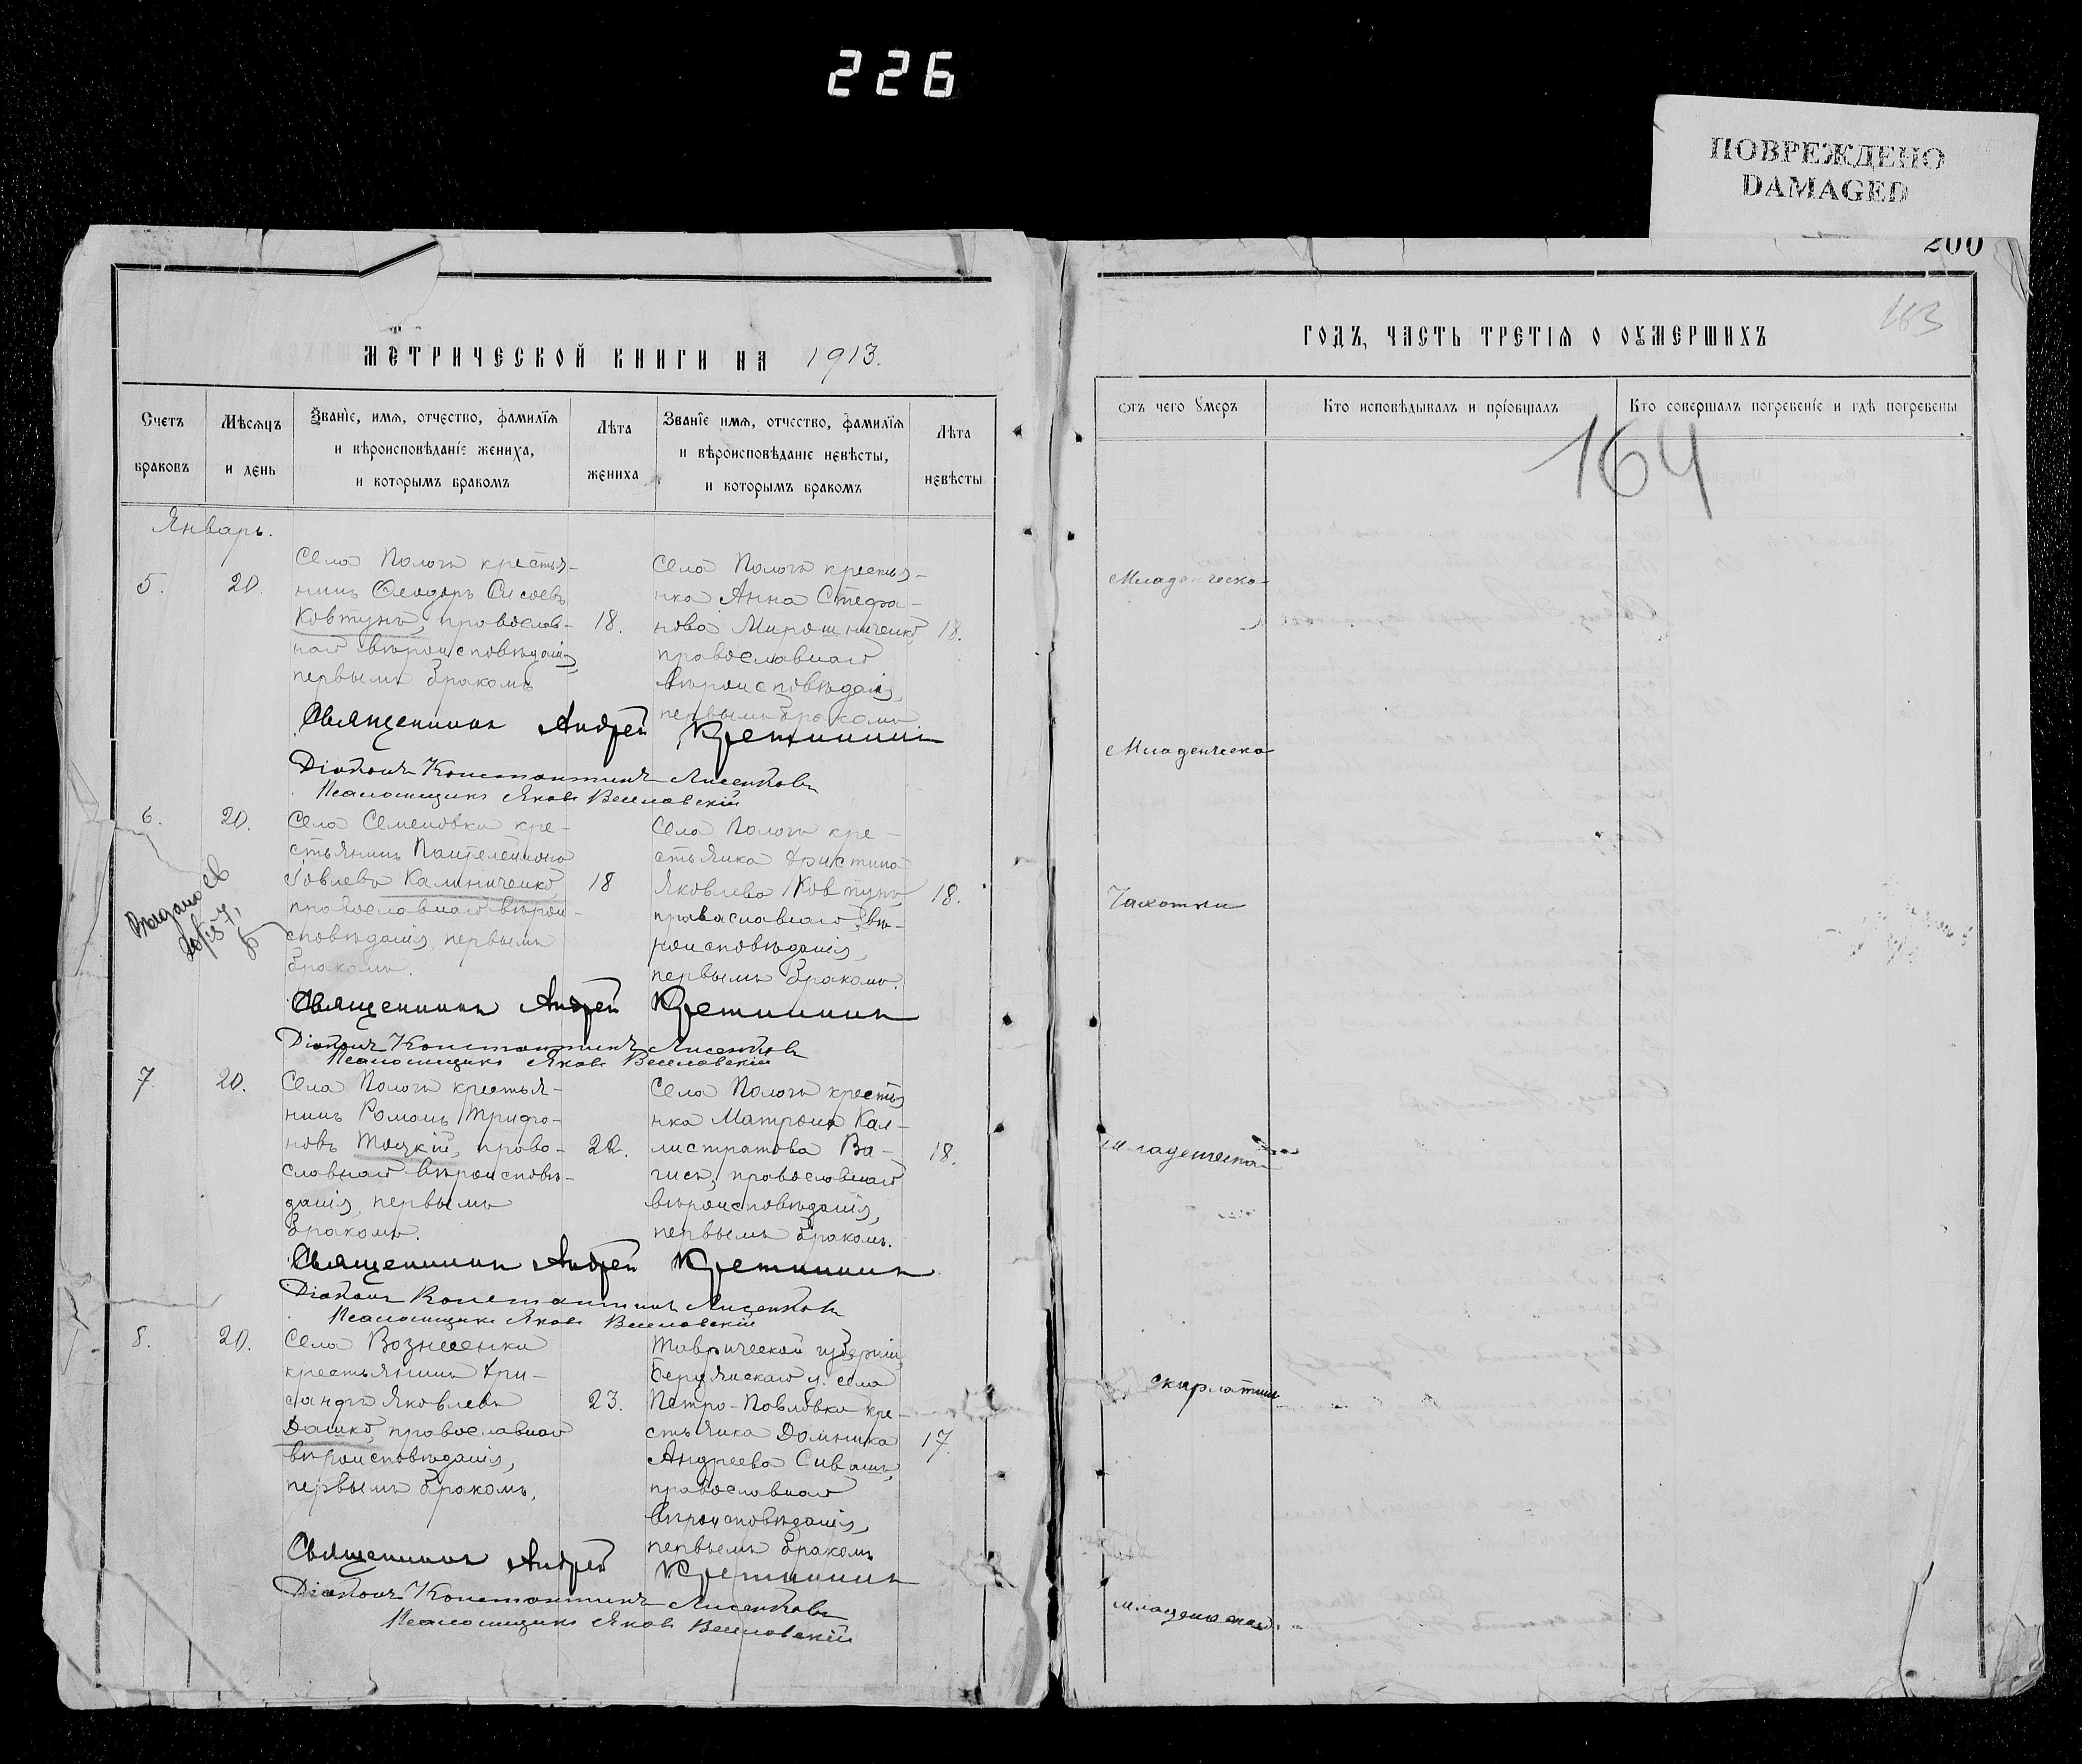 226
ПОВРЕЖДЕНО
DAMAGED
200
163
МЕТРИЧЕСКОЙ КНИГИ НА 1913.
Счетъ браковъ
Мѣсяцъ и день
Званіе, имя, отчество, фамилія
и вѣроисповѣданіе жениха,
и которымъ бракомъ
Лѣта жениха
Званіе имя, отчество, фамилія
и вѣроисповѣданіе невѣсты,
и которымъ бракомъ
Лѣта невѣсты
Январь.
5.
20.
Села Пологъ крестья-
нинъ Ѳеодоръ
Ковтунъ, православ-
наго вѣроисповѣданія,
первымъ бракомъ
18.
Села Пологъ крестья-
нка Анна Стефа-
нова Мирошниченко
православнаго
вѣроисповѣданія,
первымъ бракомъ
18.
Священникъ Андрей Кретининъ
Діаконъ Константинъ Лисенковъ
Псаломщикъ Яковъ Веселовскій
6.
20.
Села Семеновки кре-
стьянинъ Пантелеимонъ
Іовлевъ Калиниченко,
православнаго вѣрои-
сповѣданія, первымъ
бракомъ.
18
Села Пологъ кре-
стьянка Христина
Яковлева Ковтунъ,
православнаго вѣ-
роисповѣданія,
первымъ бракомъ.
18.
Выдано св
Священникъ Андрей Кретининъ
Діаконъ Константинъ Лисенковъ
Псаломщикъ Яковъ Веселовскій
7.
20.
Села Пологъ крестья-
нинъ Романъ Трифо-
новъ Тоцкій, право-
славнаго вѣроисповѣ-
данія, первымъ
бракомъ.
22.
Села Пологъ крестья
нка Матрона Кал-
листратова Ва-
православнаго
вѣроисповѣданія,
первымъ бракомъ.
18.
Священникъ Андрей Кретининъ
Діаконъ Константинъ Лисенковъ
Псаломщикъ Яковъ Веселовскій
8.
20.
Села Вознесенки
крестьянинъ Хри-
санфъ Яковлевъ
Дашко, православнаго
вѣроисповѣданія,
первымъ бракомъ,
23.
Таврической губерніи,
Бердянскаго у. села
Петро-Павловки кре-
стьянка Домника
Андреева Сивашъ,
православнаго
вѣроисповѣданія,
первымъ бракомъ
17.
Священникъ Андрей Кретининъ
Діаконъ Константинъ Лисенковъ
Псаломщикъ Яковъ Веселовскій
ГОДЪ, ЧАСТЬ ТРЕТІЯ О ОУМЕРШИХЪ
Отъ чего умеръ
Кто исповѣдывалъ и пріобщалъ
Кто совершалъ погребеніе и гдѣ погребены
164
Младенческа
Младенческа
Чахотки
Младенческа
скарлатины